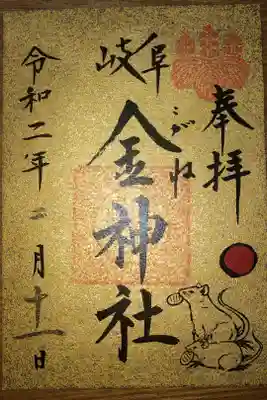 奉拝
岐阜
金神社
こがね
令和二年二月十一日